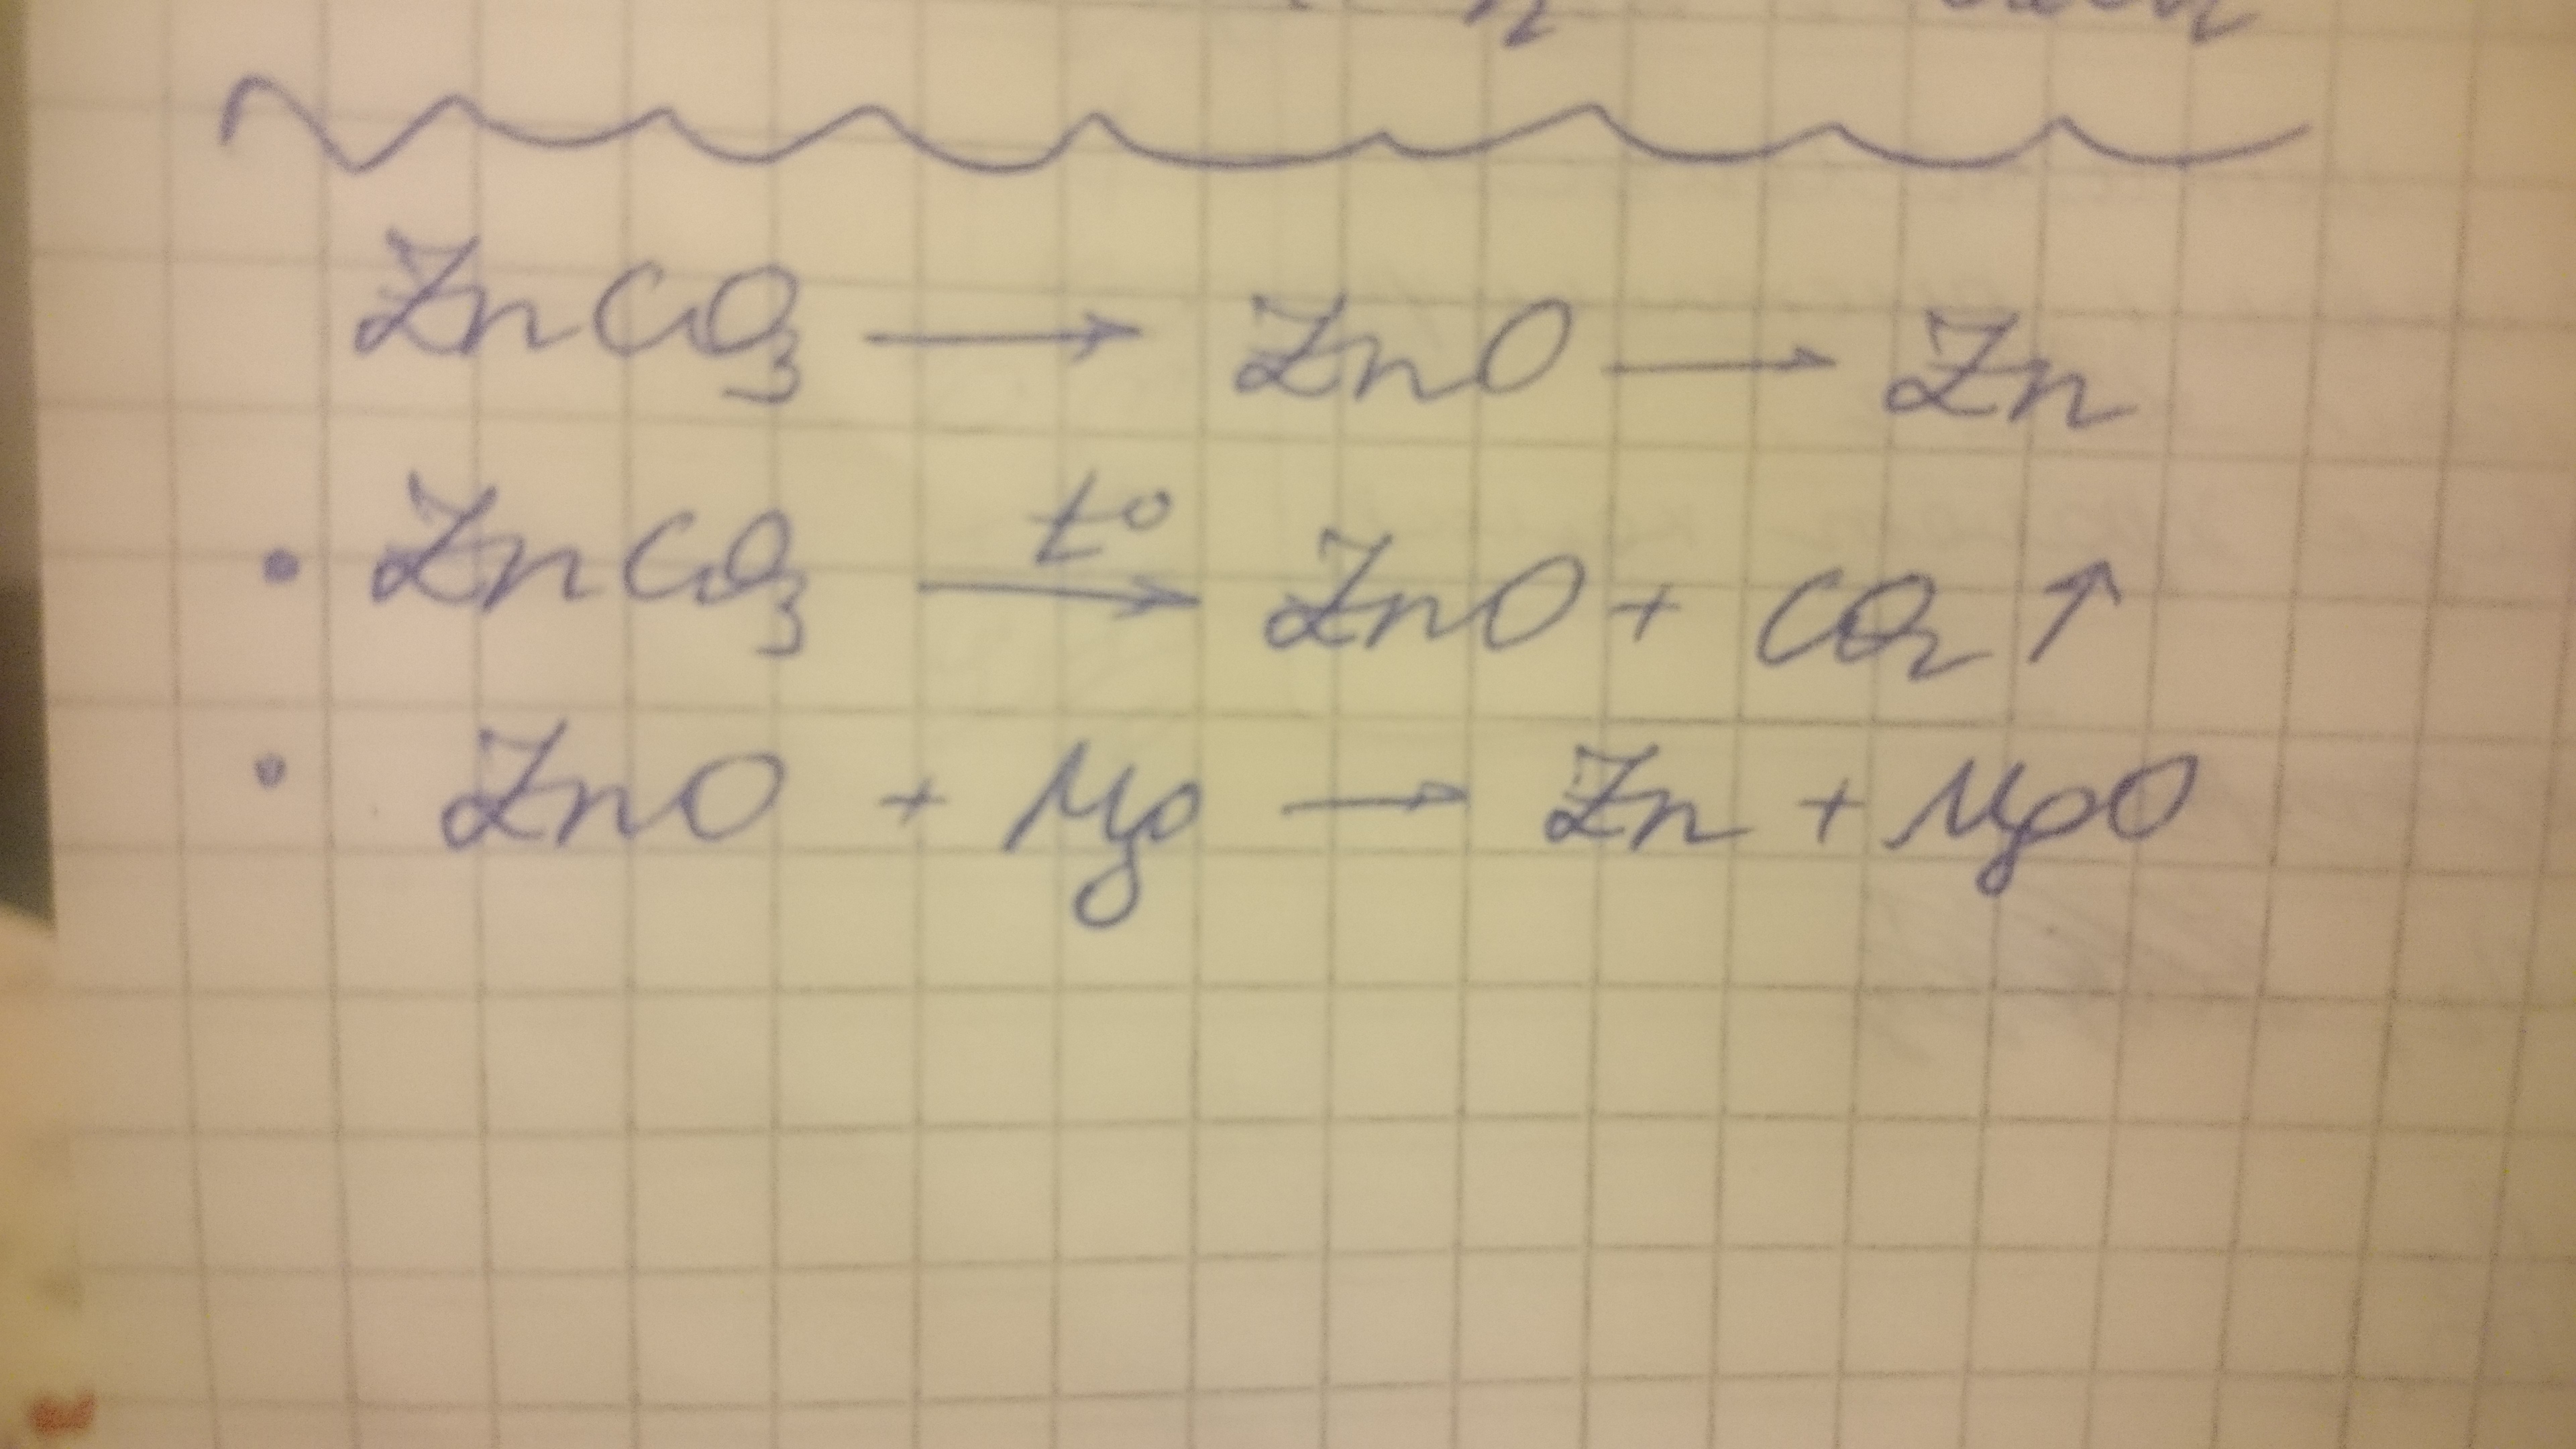 ZnCO₃ → ZnO → Zn
• ZnCO₃ t° → ZnO + CO₂ ↑
• ZnO + Mg → Zn + MgO